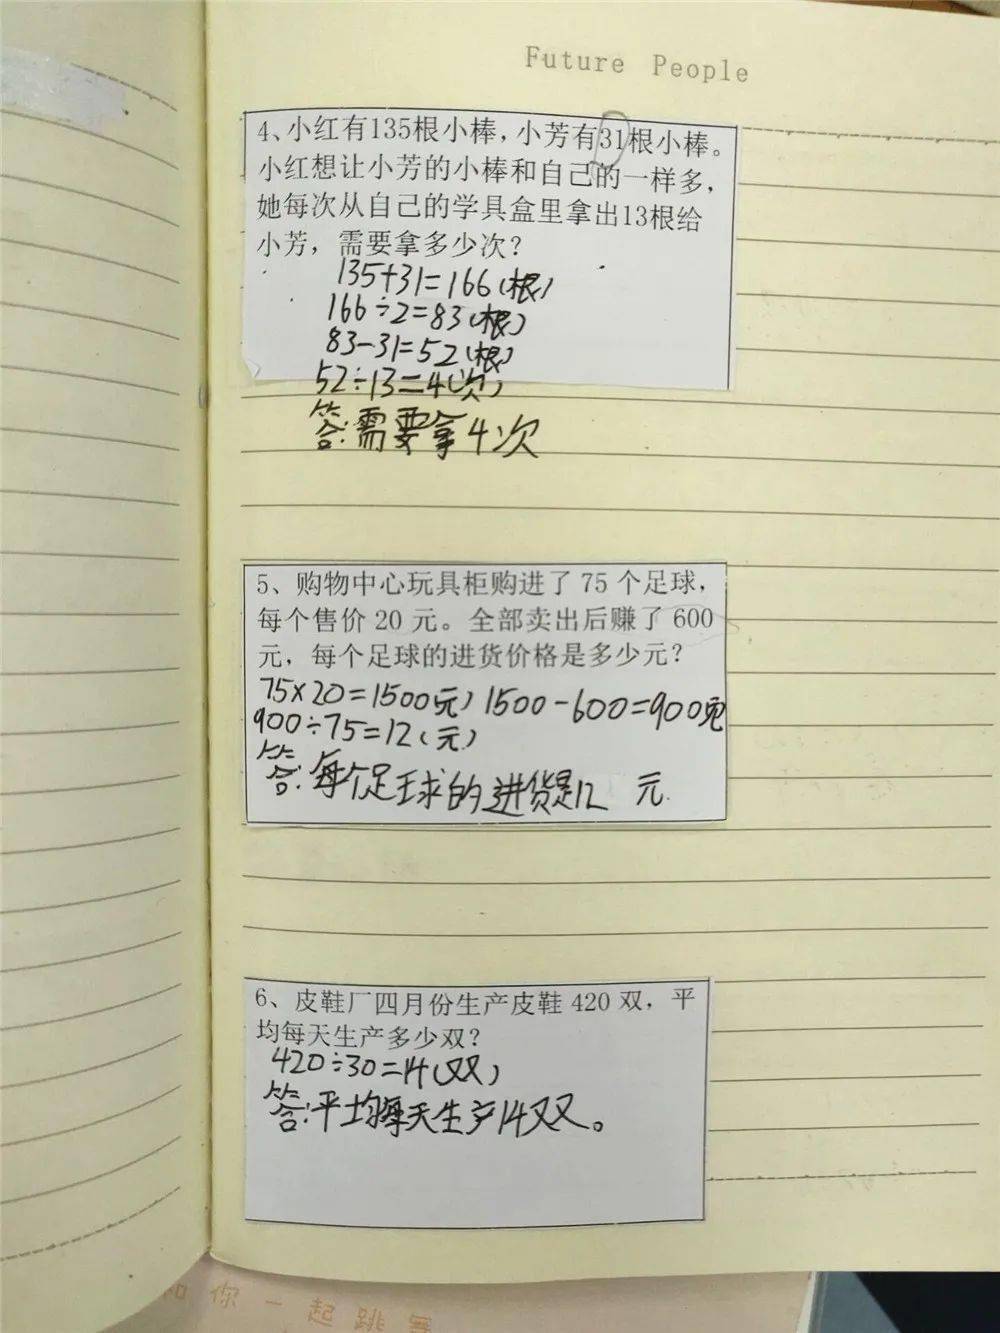 Future People
4、小红有135根小棒，小芳有31根小棒。
小红想让小芳的小棒和自己的一样多，
她每次从自己的学具盒里拿出13根给
小芳，需要拿多少次？
135+31=166(根)
166÷2=83(根)
83-31=52(根)
52÷13=4(次)
答:需要拿4次
5、购物中心玩具柜购进了 75 个足球，
每个售价 20 元。全部卖出后赚了 600
元，每个足球的进货价格是多少元？
75×20=1500(元) 1500-600=900(元)
900÷75=12(元)
答:每个足球的进货是12 元.
6、皮鞋厂四月份生产皮鞋 420 双，平
均每天生产多少双？
420÷30=14(双)
答:平均每天生产14双。
和你一起跳舞